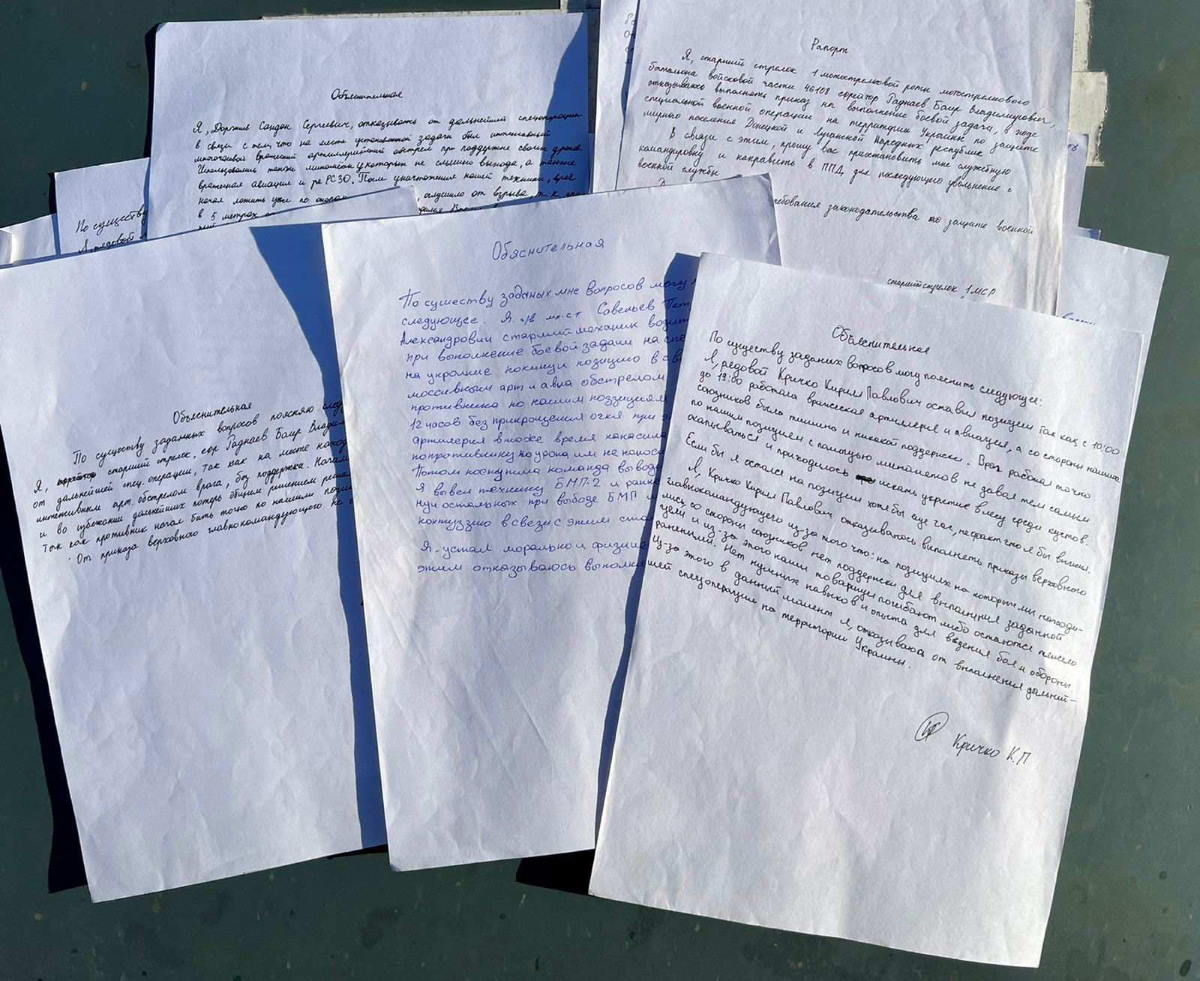 Объяснительная
Я, Доржиев Сандан Сергеевич, отказываюсь от дальнейшей спецоперации
в связи с тем, что на месте установленной задачи был интенсивный
многочасовой вражеский артиллерийский обстрел при поддержке своих дронов.
Использовались также миномёты у которых не слышно выхода, а также
вражеская авиация и РСЗО. После уничтожения нашей техники, враг
начал ложить уже по окопам
оглушило от взрыва
в 5 метрах от
По существу
Я, рядовой
Рапорт
Я, старший стрелок 1 мотострелковой роты мотострелкового
батальона войсковой части 46108 ефрейтор Раднаев Баир Владимирович,
отказываюсь выполнять приказ на выполнение боевой задачи, в ходе
специальной военной операции на территории Украины по защите
мирного населения Донецкой и Луганской народных республик.
В связи с этим, прошу вас приостановить мне служебную
командировку и направить в ППД, для последующего увольнения с
военской службы
требования законодательства по защите военной
старший стрелок 1 МСР
Объяснительная
По существу заданных вопросов поясняю
Я, старший стрелок, ефр Раднаев Баир
от дальнейшей спец. операции, так как на месте
интенсивным арт. обстрелом врага, без поддержки.
и во избежании дальнейших потерь общим решением
так как противник начал бить точно по нашим
От приказа верховного главнокомандующего
Обяснительная
По сушеству заданых мне вопросов могу
следующее. Я г/в мл.с-т Савельев
Александрович старший механик
при вополнение боевой задачи на
на украине покинул позицию в
моссивным арт и авиа обстрелом
противника по нашим поззициям
12 часов без прикрощения огня при
артилерия в тоже время наносила
попротивнику но урона им не
Потом поступила команда выводить
Я вывел технику БМП-2 и
остальных при выводе БМП
контуззию в свези с этим
Я устал морально и
этим отказываюсь
Объяснительная
По существу заданых вопросов могу пояснить следующее:
Я, рядовой Кричко Кирил Павлович оставил позиции так как с 10:00
до 19:00 работала вражеская артиллерия и авиация, а со стороны наших
союзников было тишино и никакой поддержки. Враг работал точно
по нашим позициям с помощью минометов не давая тем самым
окапываться и приходилось искать укрытие в лесу среди кустов.
Если бы я остался на позиции хотя бы еще час, нефакт что я бы выжил.
Я, Кричко Кирил Павлович отказываюсь выполнять приказы верховного
главнокомандующего из-за того что: на позициях на которым мы находи-
лись со стороны союзников нет поддержки для выполнения заданной
цели и из-за этого наши товарищи погибают либо остаются тяжело
раненными. Нет нужных навыков и опыта для ведения боя и обороны.
Из-за этого в данный момент я, отказываюсь от выполнения дальней-
шей спецоперации на территории Украины.
Кричко К.П